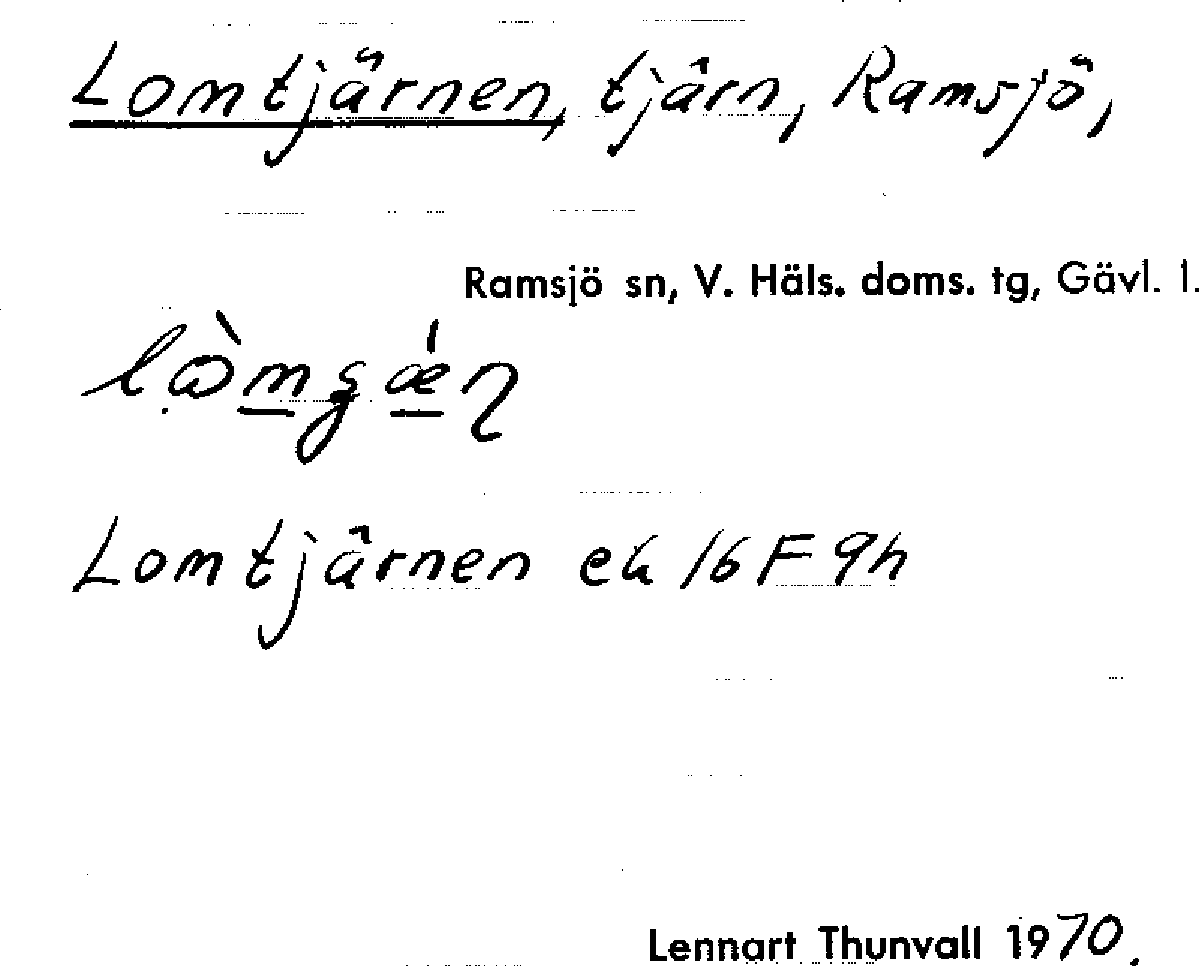 Lomtjärnen, tjärn, Ramsjö,
Ramsjö sn, V. Häls. doms. tg, Gävl. l.
Lomtjärnen ek 16F 9h
Lennart Thunvall 1970.